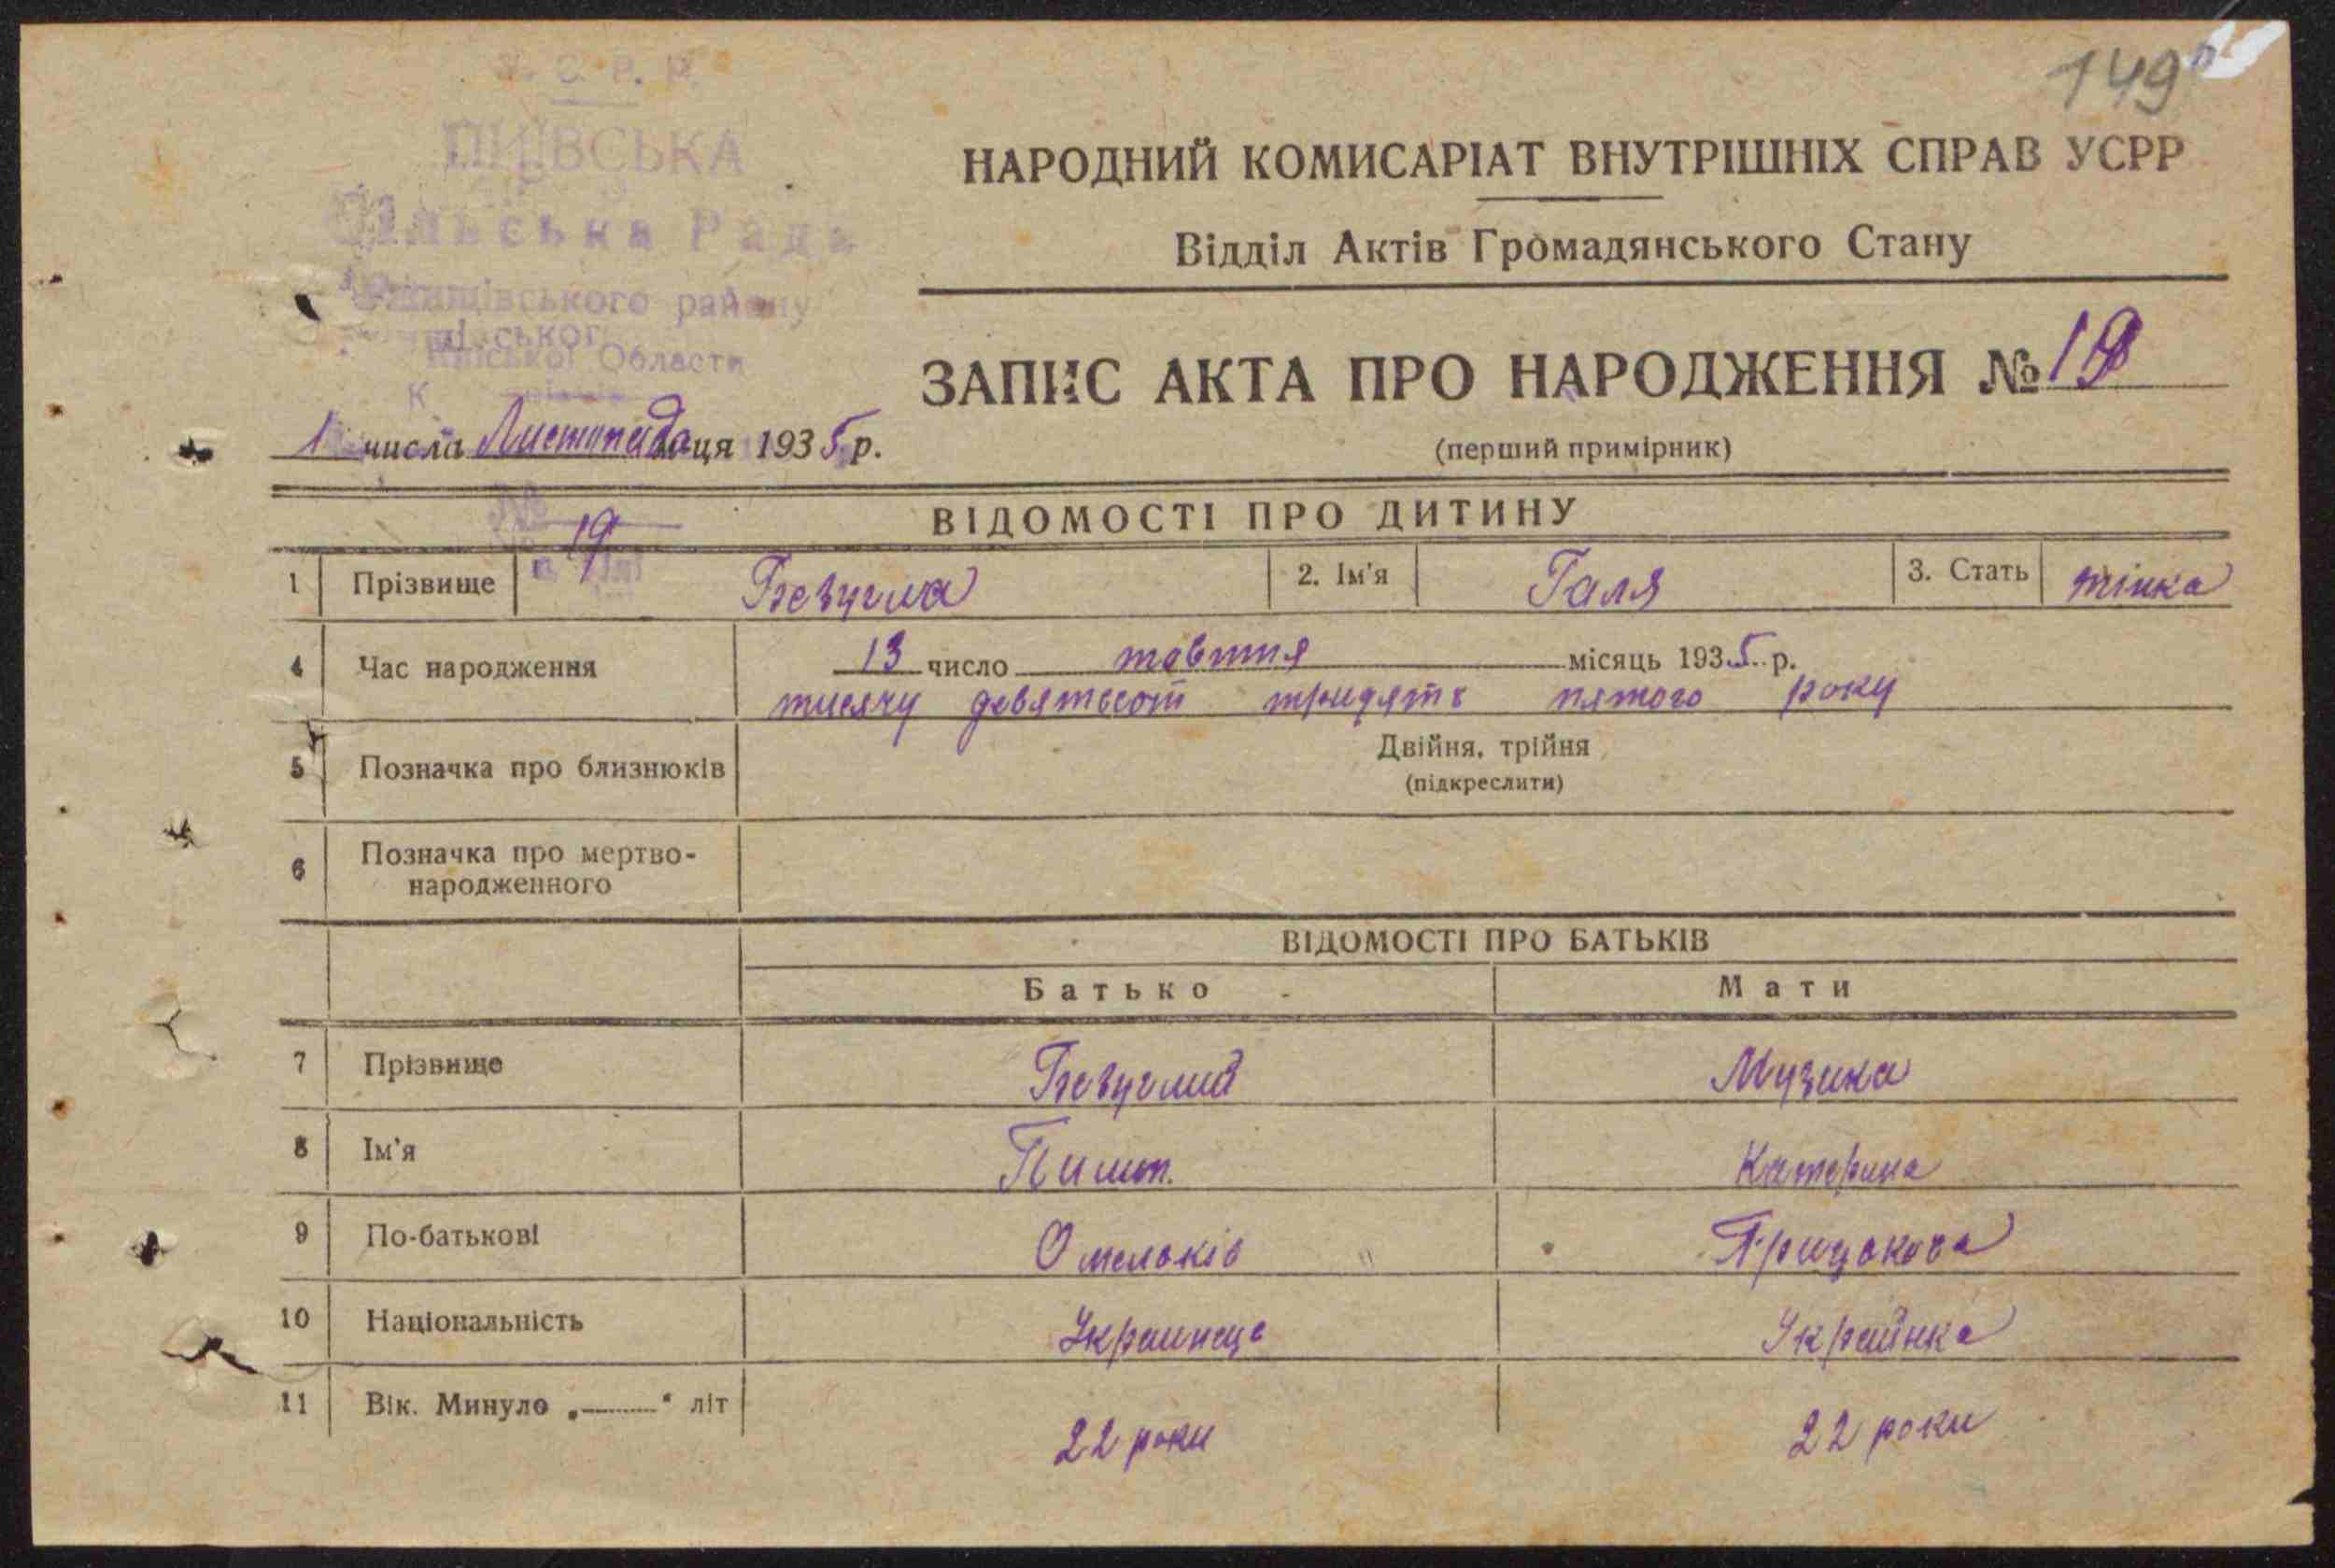 У. С. Р. Р.
149
ПИЇВСЬКА
Сільська Рада
району
Області
НАРОДНИЙ КОМИСАРІАТ ВНУТРІШНІХ СПРАВ УСРР
Відділ Актів Громадянського Стану
ЗАПИС АКТА ПРО НАРОДЖЕННЯ № 19
1 числа Листопада м-ця 1935 р.
(перший примірник)
№ 19
ВІДОМОСТІ ПРО ДИТИНУ
1 Прізвище Безугла 2. Ім'я Галя 3. Стать жінка
4 Час народження 13 число жовтня місяць 1935 р.
тисячу девятьсот тридять пятого року
5 Позначка про близнюків Двійня, трійня
(підкреслити)
6 Позначка про мертво-
народженного
ВІДОМОСТІ ПРО БАТЬКІВ
Батько Мати
7 Прізвище Безуглий Музика
8 Ім'я Пилип Катерина
9 По-батькові Омельків Грицькова
10 Національність Украинець Украйнка
11 Вік. Минуло „ “ літ 22 роки 22 роки